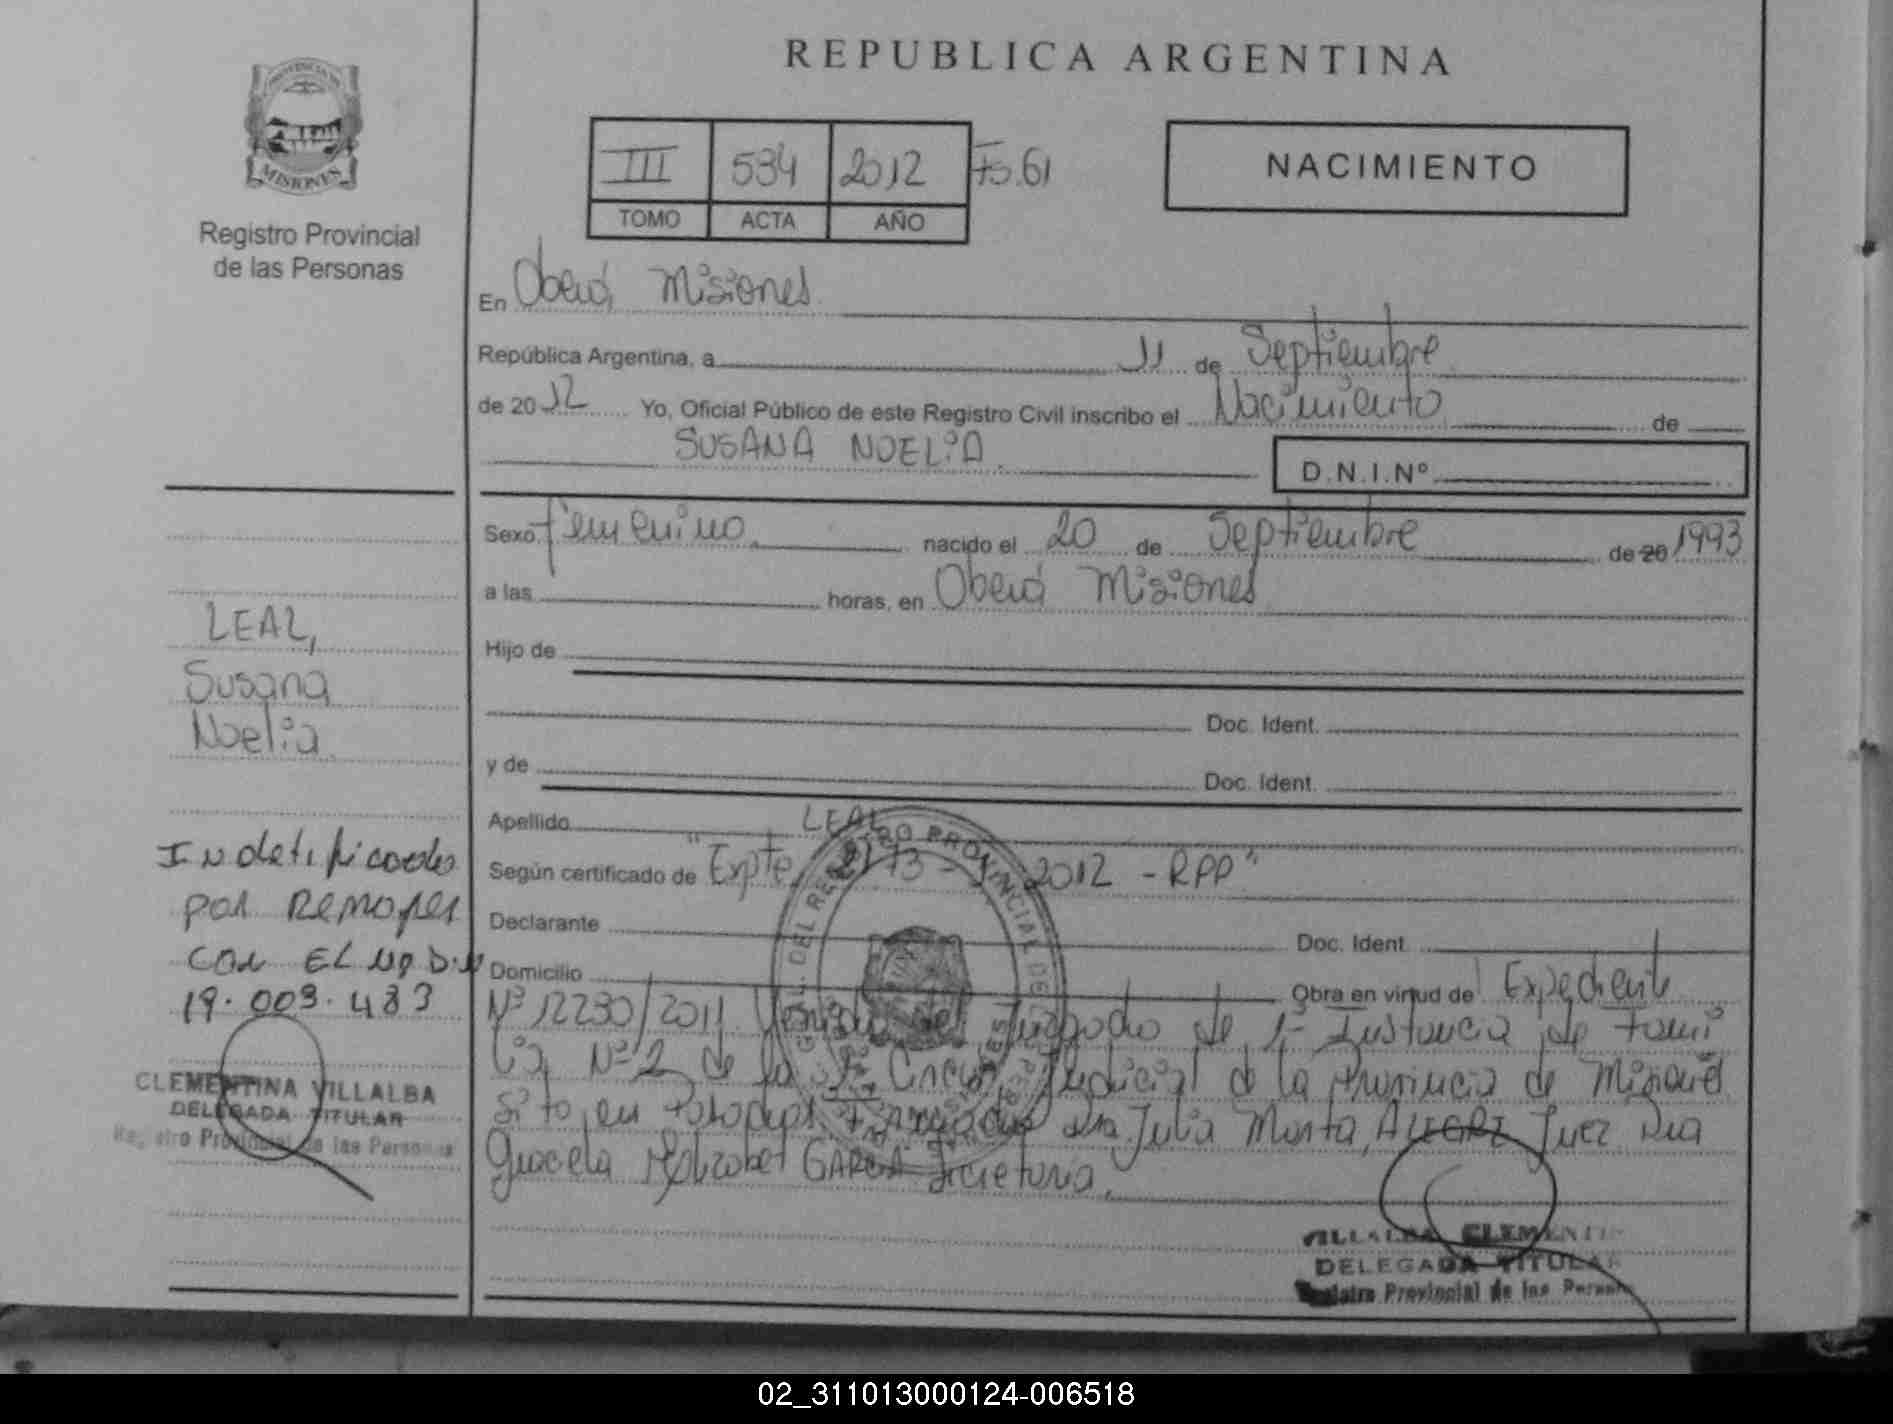 PROVINCIA DE
MISIONES
Registro Provincial
de las Personas
REPUBLICA ARGENTINA
III 534 2012 Fº.61
TOMO ACTA AÑO
NACIMIENTO
En Oberá, Misiones
República Argentina, a 11 de Septiembre
de 2012 Yo, Oficial Público de este Registro Civil inscribo el Nacimiento de
SUSANA NOELIA
D.N.I.Nº
Sexo femenino nacido el 20 de Septiembre de 20 1993
a las horas, en Oberá Misiones
Hijo de
Doc. Ident.
y de Doc. Ident.
Apellido LEAL
Según certificado de "Expte 2012 - RPP"
Declarante Doc. Ident.
Domicilio Obra en virtud de Expediente
Nº 12230/2011 Juzgado de 1- Instancia de Fami
lia Nº 2 de la Judicial de la Provincia de Misiones
Sito en Posadas Dra Julia Marta, ALEGRE Juez Dra
Graciela GARCIA Secretaria.
VILLALBA CLEMENTIN
DELEGADA TITULAR
Registro Provincial de las Persona
LEAL,
Susana
Noelia
Indetificado
por Renaper
con EL Nº D.N
19.003.483
CLEMENTINA VILLALBA
DELEGADA TITULAR
Registro Provincial de las Personas
02_311013000124-006518